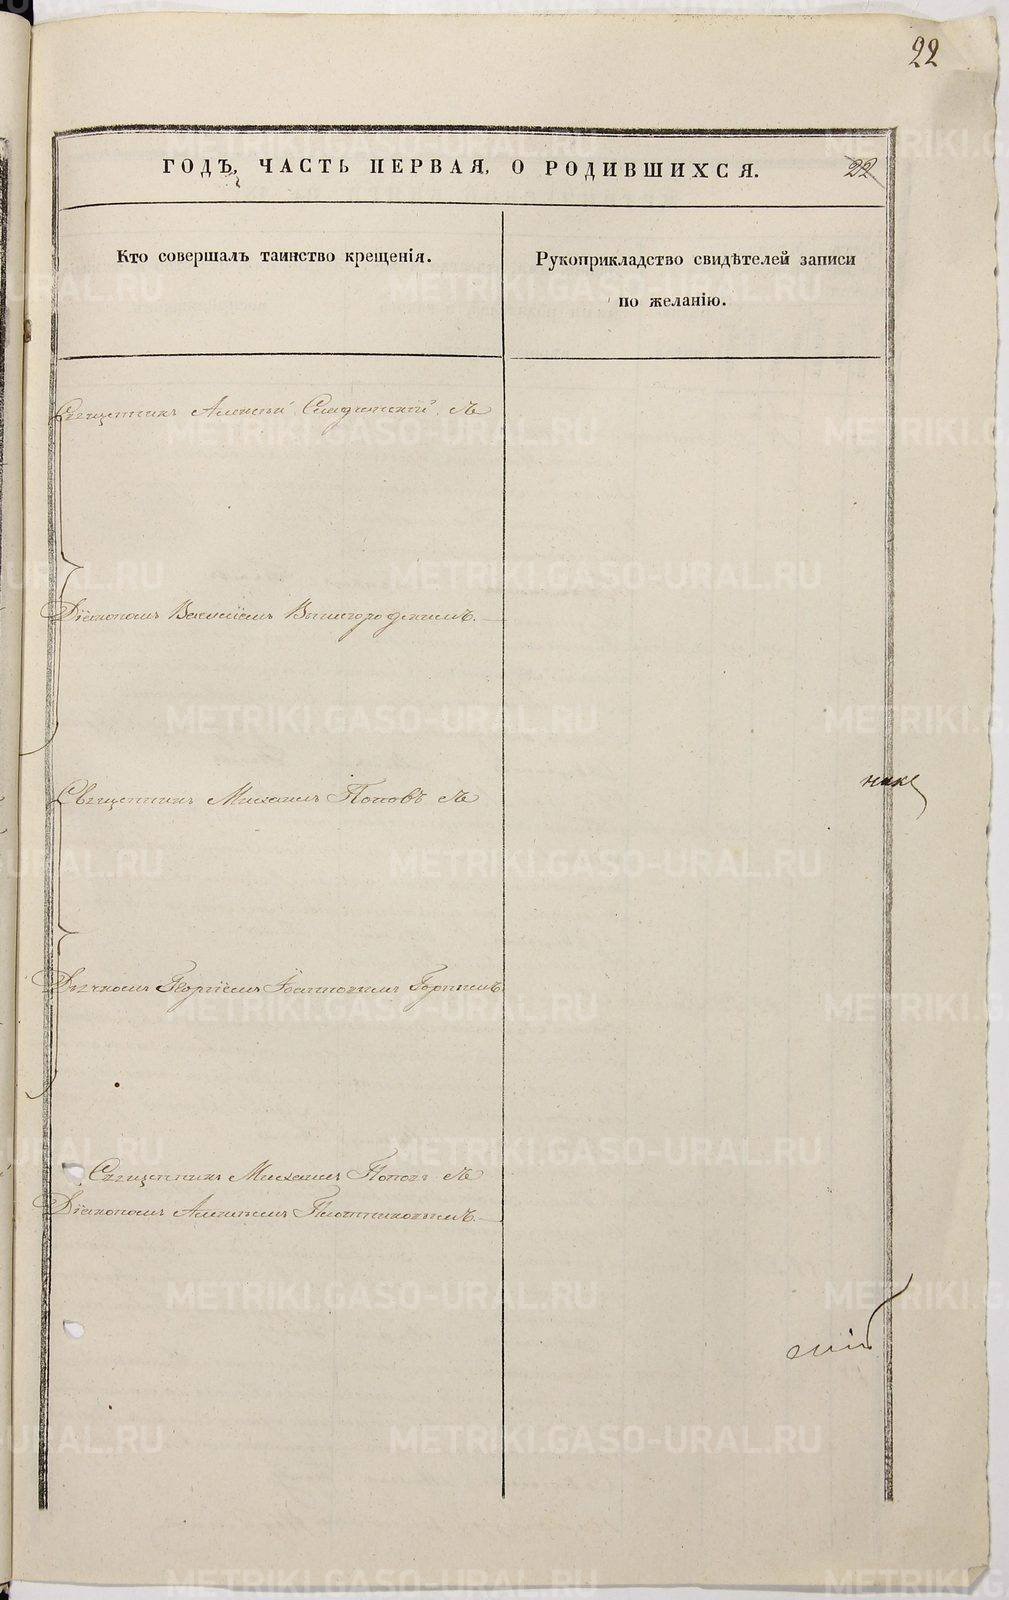 22
ГОДЪ, ЧАСТЬ ПЕРВАЯ, О РОДИВШИХСЯ. 22
Кто совершалъ таинство крещенія.
Рукоприкладство свидѣтелей записи
по желанію.
Священникъ Алексѣй съ
Діакономъ Василіемъ Вышегородскимъ.
Священникъ Михаилъ Поповъ съ
Дьячкомъ Георгіемъ Іоанновымъ Горнымъ
Священникъ Михаилъ Поповъ съ
Діакономъ Плотниковымъ.
METRIKI.GASO-URAL.RU